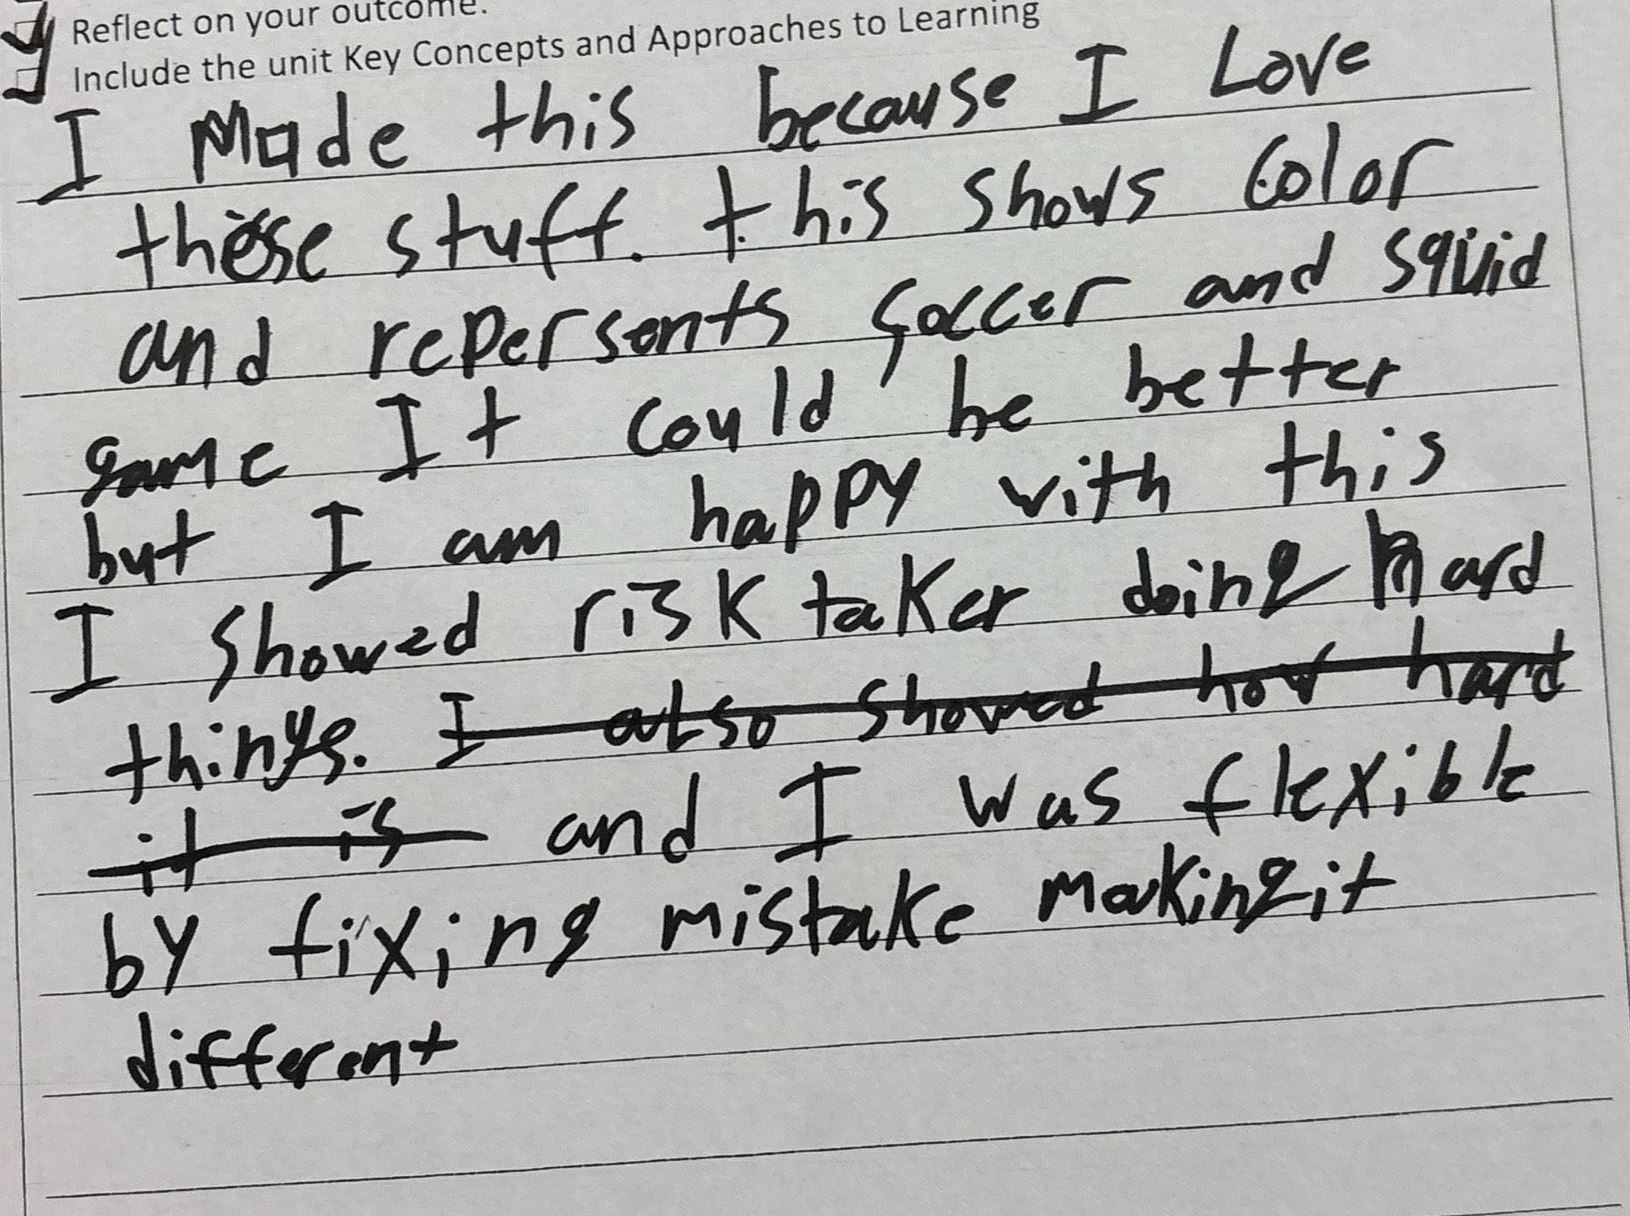 Reflect on your outcome.
Include the unit Key Concepts and Approaches to Learning
I Made this because I Love
these stuff. this shows color
and repersents soccer and squid
game It could be better
but I am happy with this
I showed risk taker doing hard
things. I also showed how hard
it is and I was flexible
by fixing mistake making it
different